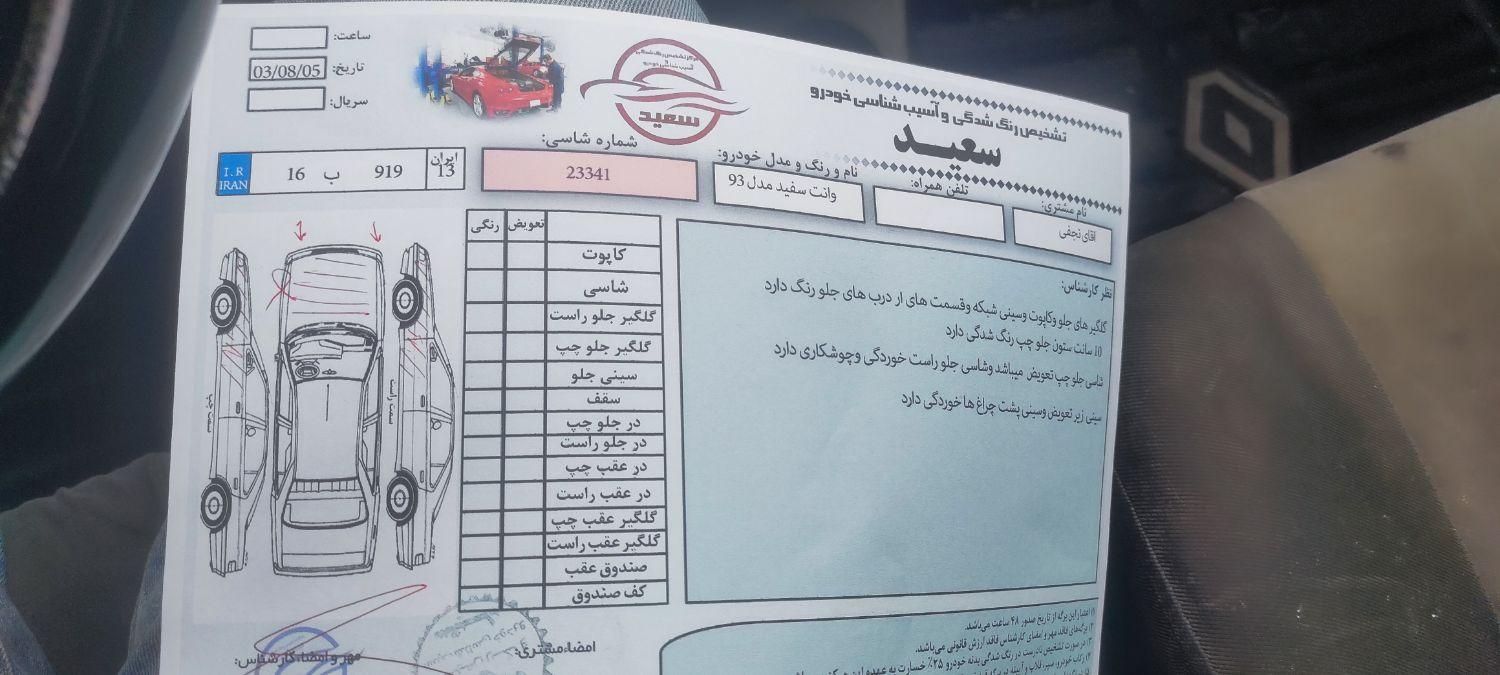 تشخیص رنگ شدگی و آسیب شناسی خودرو
سعید
مرکز تشخیص رنگ شدگی
آسیب شناسی خودرو
سعید
ساعت:
تاریخ: 03/08/05
سریال:
نام مشتری:
اقای نجفی
تلفن همراه:
نام و رنگ و مدل خودرو:
وانت سفید مدل 93
شماره شاسی:
23341
I.R
IRAN
16 ب 919
ایران
13
نظر کارشناس:
گلگیر های جلو وکاپوت وسینی شبکه وقسمت های ار درب های جلو رنگ دارد
10 سانت ستون جلو چپ رنگ شدگی دارد
شاسی جلو چپ تعویض میباشد وشاسی جلو راست خوردگی وچوشکاری دارد
سینی زیر تعویض وسینی پشت چراغ ها خوردگی دارد
تعویض رنگی
کاپوت
شاسی
گلگیر جلو راست
گلگیر جلو چپ
سینی جلو
سقف
در جلو چپ
در جلو راست
در عقب چپ
در عقب راست
گلگیر عقب چپ
گلگیر عقب راست
صندوق عقب
کف صندوق
سمت راست
سمت چپ
امضاء مشتری:
مهر و امضاء کارشناس:
۱) اعتبار این برگه از تاریخ صدور ۴۸ ساعت می‌باشد.
۲) برگه‌های فاقد مهر و امضای کارشناس فاقد ارزش قانونی می‌باشد.
۳) در صورت تشخیص نادرست در رنگ شدگی بدنه خودرو ۲۵٪ خسارت به عهده این